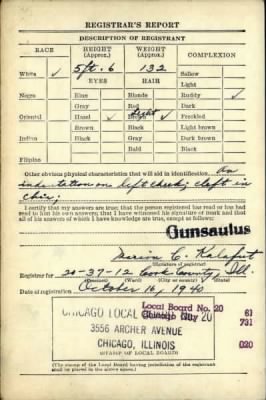 REGISTRAR'S REPORT
DESCRIPTION OF REGISTRANT
RACE HEIGHT (Approx.) WEIGHT (Approx.) COMPLEXION
White ✓ 5ft. 6 132 Sallow
EYES HAIR Light
Negro Blue Blonde Ruddy ✓
Gray Red Dark
Oriental Hazel ✓ Light Brown Freckled
Brown Black Light brown
Indian Black Gray Dark brown
Bald Black
Filipino
Other obvious physical characteristics that will aid in identification. An
indentation on left cheek; cleft in
chin;
I certify that my answers are true; that the person registered has read or has
had read to him his own answers; that I have witnessed his signature or mark and that
all of his answers of which I have knowledge are true, except as follows:
Gunsaulus
Marion C. Kalafut
(Signature of registrar)
Registrar for 20-37-12 Cook County, Ill
(Precinct) (Ward) (City or County) (State)
Date of registration October 16, 1940
Local Board No. 20 61
CHICAGO LOCAL 20 731
3556 ARCHER AVENUE
CHICAGO, ILLINOIS 020
(STAMP OF LOCAL BOARD)
(The stamp of the Local Board having jurisdiction of the registrant
shall be placed in the above space.)